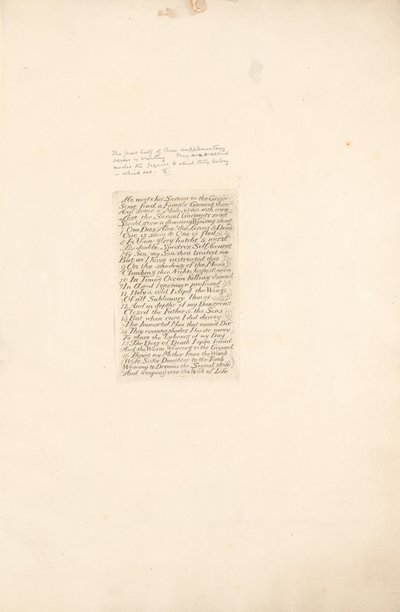 The first half of these supplementary
verses is wanting. They are
under the figures to which they belong
which see.
He meets his Saviour in the Grave
Some find a Female Garment there
And some a Male, woven with care
Lest the Sexual Garments sweet
Should grow a devouring Winding sheet
One Dies! Alas! the Living & Dead
One is slain & One is fled
8 In Vain-glory hatcht & nurst
By double Spectres Self Accurst
My Son! my Son! thou treatest me
But as I have instructed thee
9 On the shadows of the Moon
Climbing thro Nights highest noon
10 In Times Ocean falling drownd
In Aged Ignorance profound
11 Holy & cold I clipd the Wings
Of all Sublunary Things
12 And in depths of my Dungeons
Closed the Father & the Sons
13 But when once I did descry
The Immortal Man that cannot Die
14 Thro evening shades I haste away
To close the Labours of my Day
15 The Door of Death I open found
And the Worm Weaving in the Ground
16 Thou'rt my Mother from the Womb
Wife, Sister, Daughter to the Tomb
Weaving to Dreams the Sexual strife
And weeping over the Web of Life